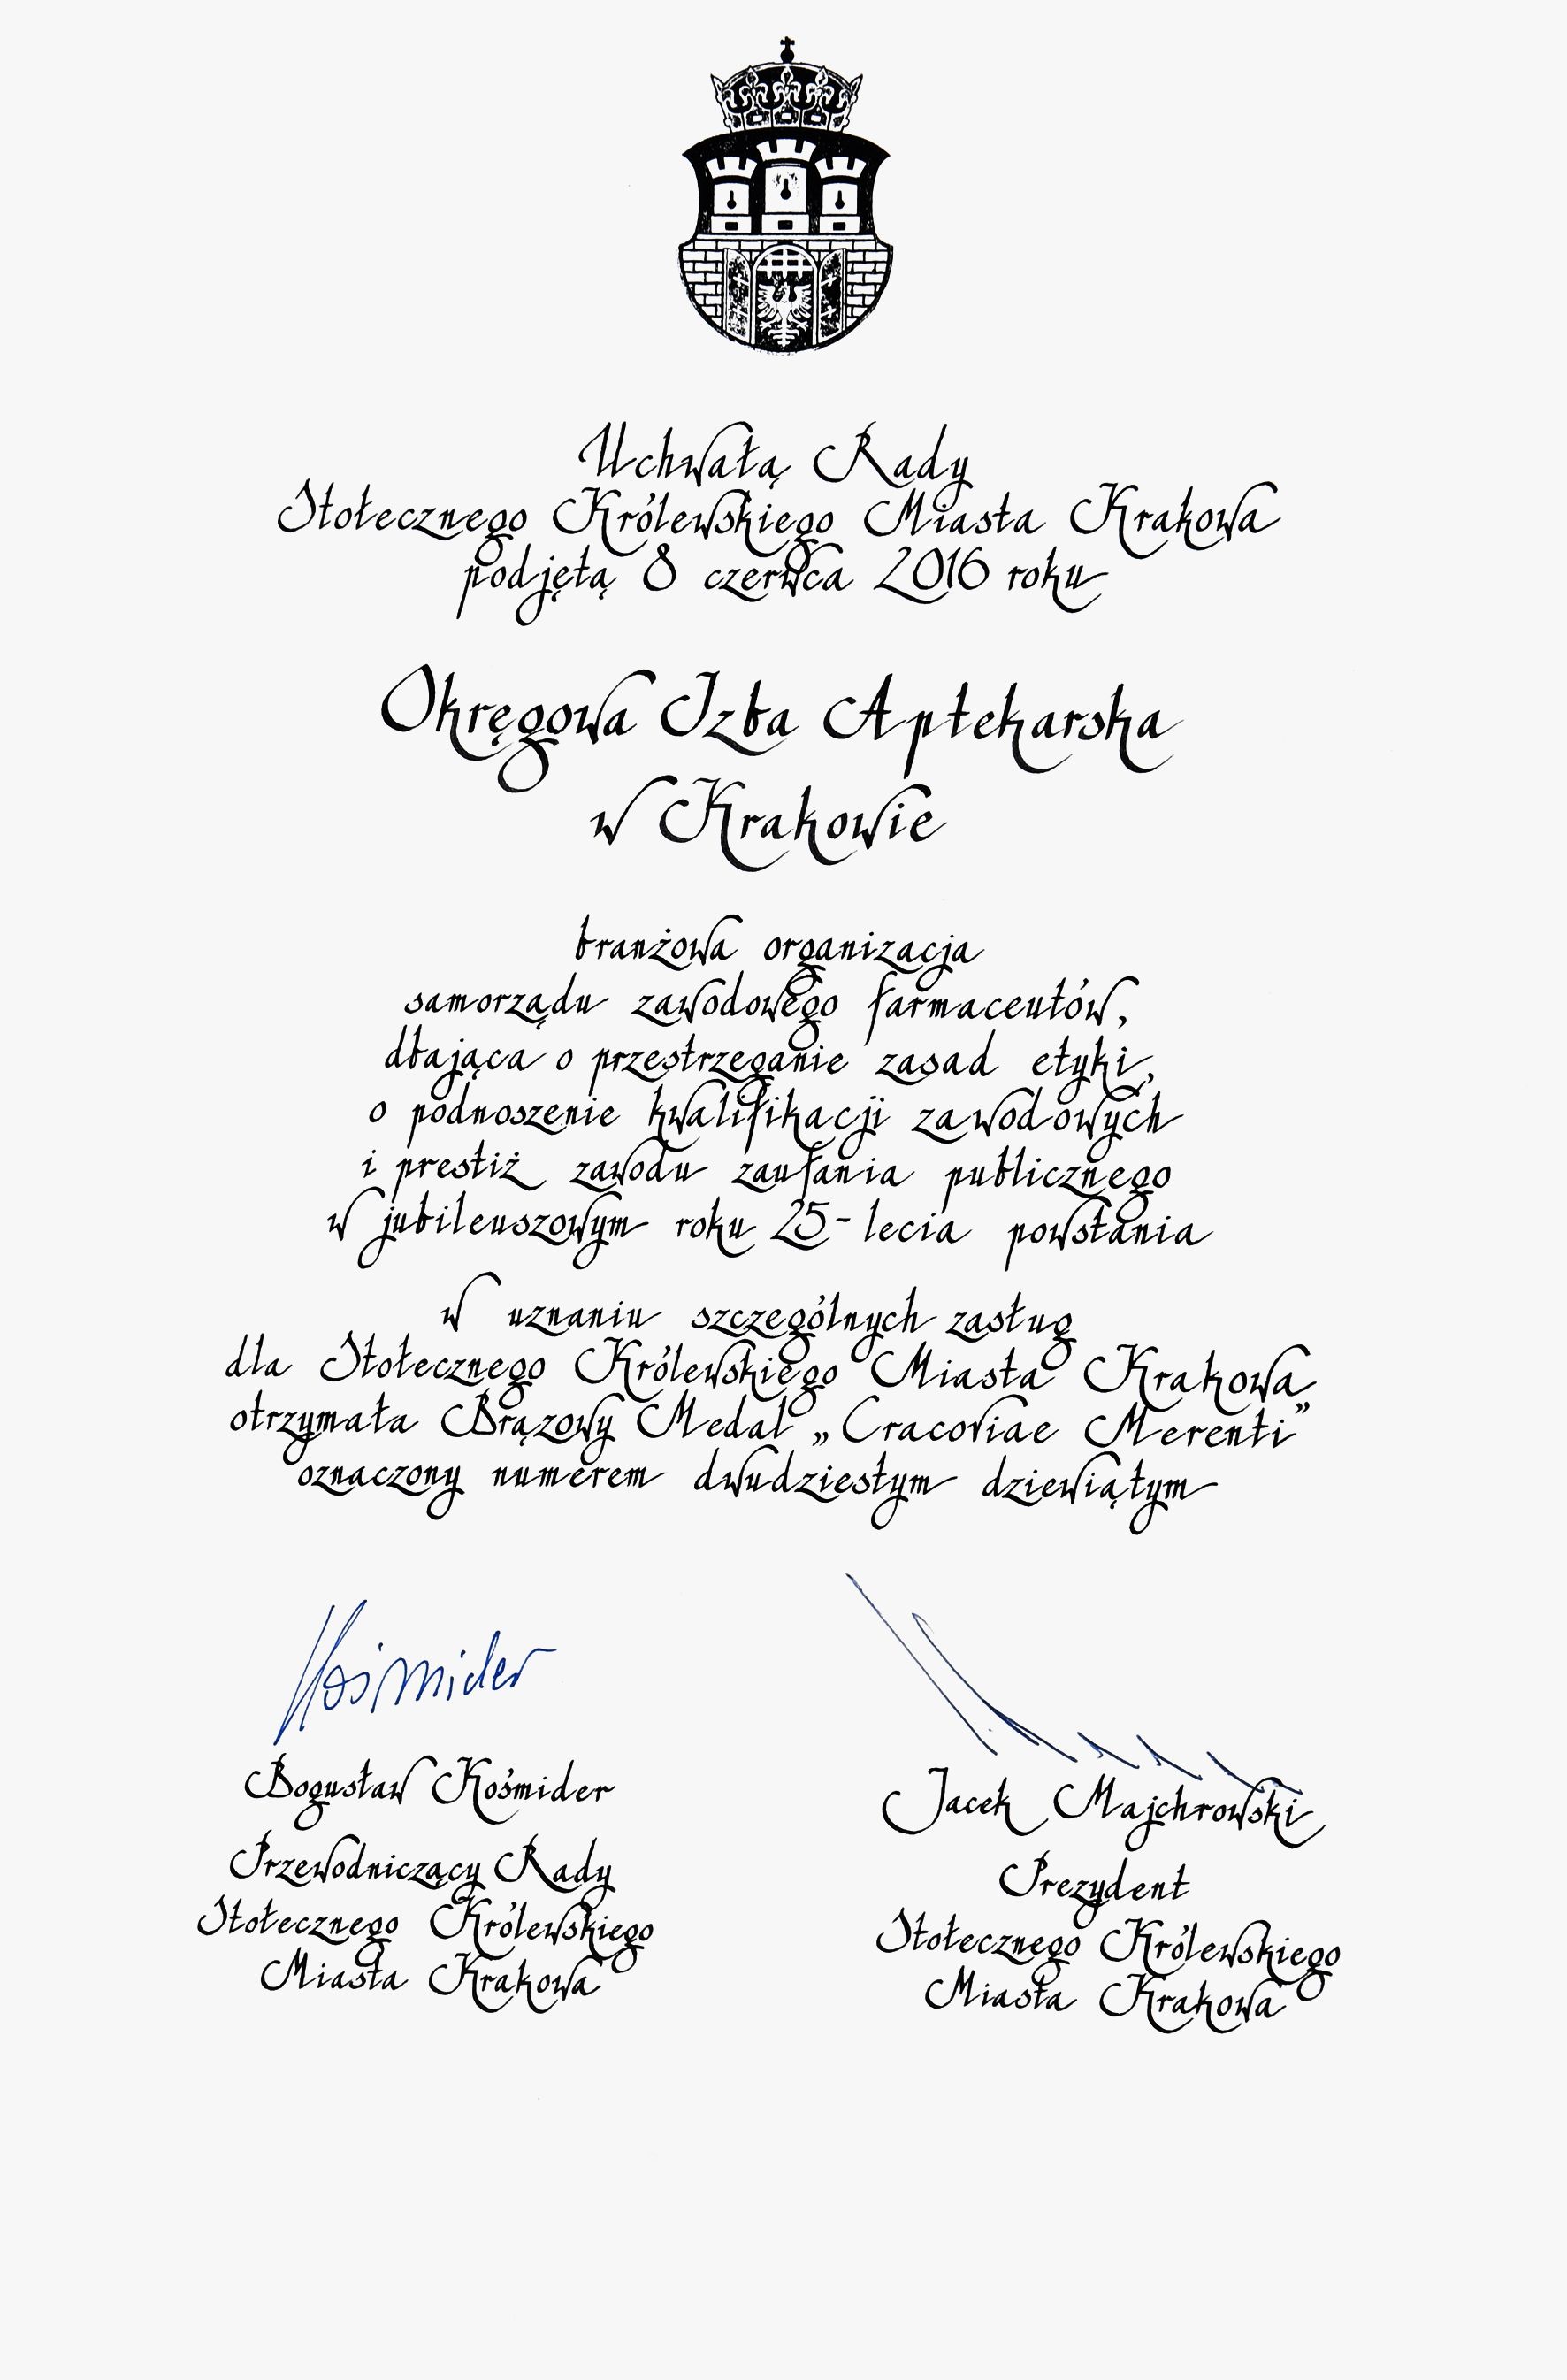 Uchwałą Rady
Stołecznego Królewskiego Miasta Krakowa
podjętą 8 czerwca 2016 roku
Okręgowa Izba Aptekarska
w Krakowie
branżowa organizacja
samorządu zawodowego farmaceutów,
dbająca o przestrzeganie zasad etyki,
o podnoszenie kwalifikacji zawodowych
i prestiż zawodu zaufania publicznego
w jubileuszowym roku 25-lecia powstania
w uznaniu szczególnych zasług
dla Stołecznego Królewskiego Miasta Krakowa
otrzymała Brązowy Medal „Cracoviae Merenti”
oznaczony numerem dwudziestym dziewiątym
Kośmider
Bogusław Kośmider
Przewodniczący Rady
Stołecznego Królewskiego
Miasta Krakowa
Jacek Majchrowski
Prezydent
Stołecznego Królewskiego
Miasta Krakowa